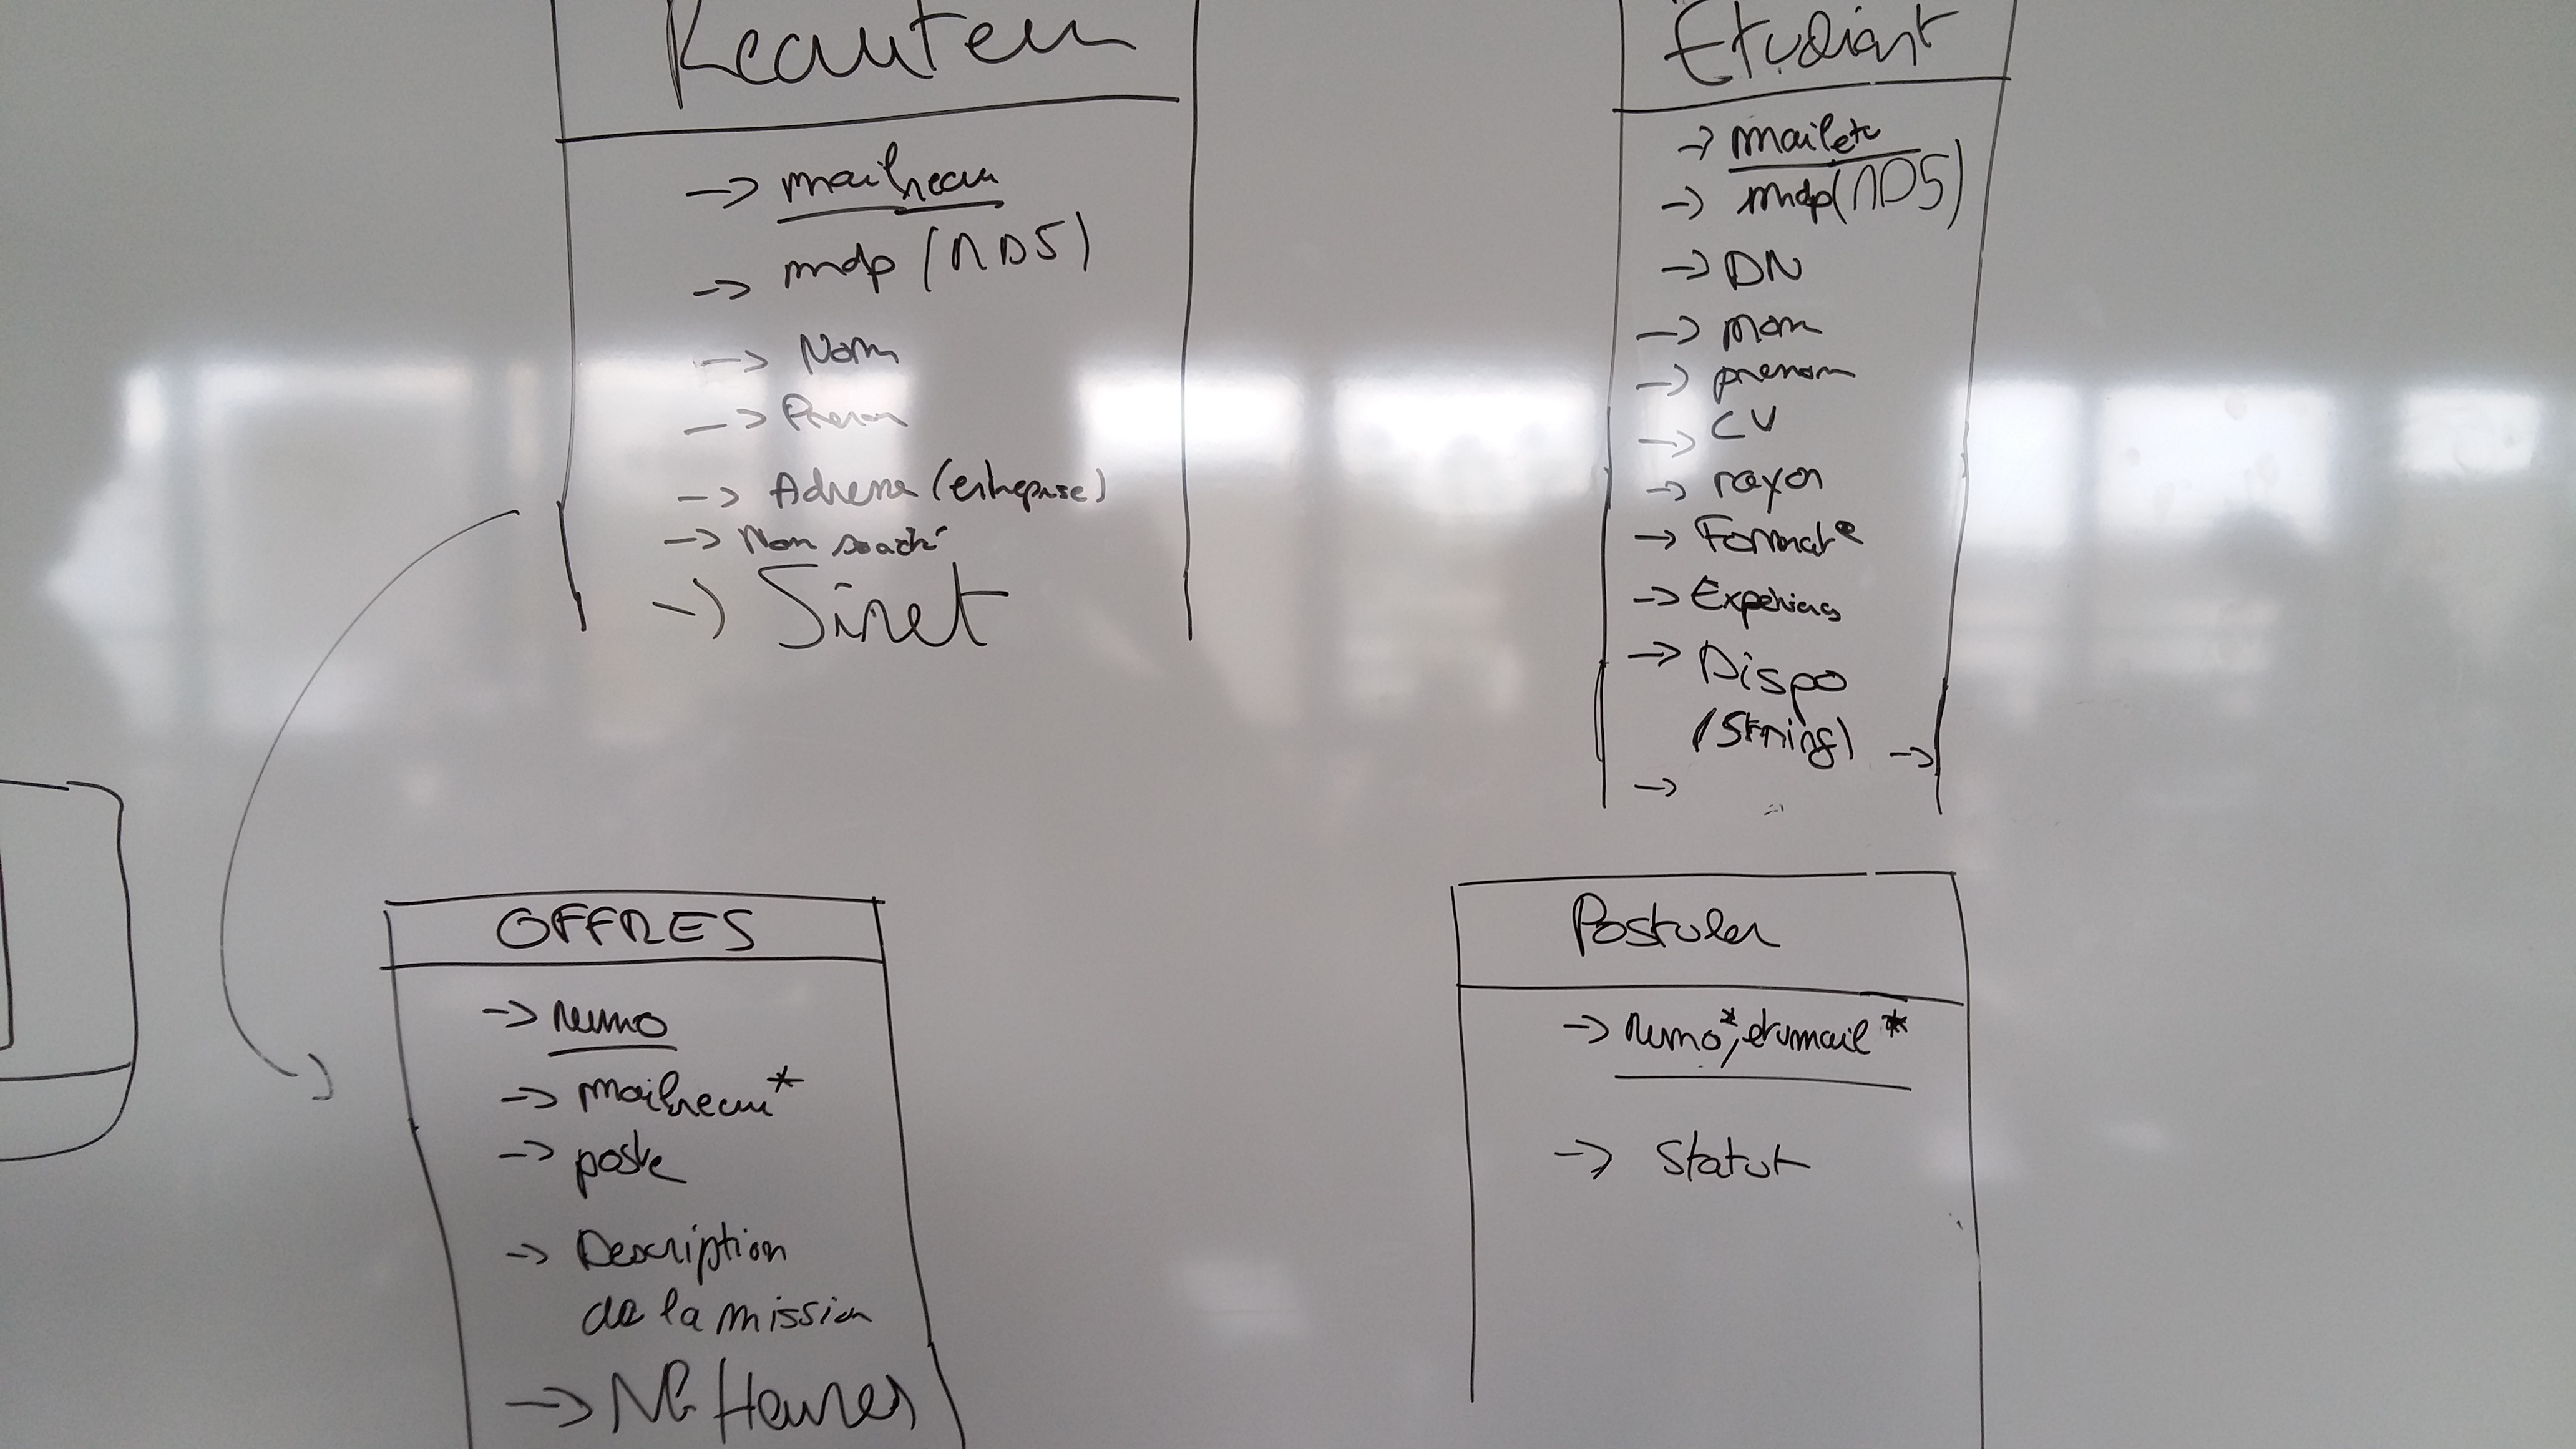 Recruteur
-> mailrecru
-> mdp (MD5)
-> Nom
-> Prenom
-> Adresse (entreprise)
-> Nom société
-> Siret
Etudiant
-> mailetu
-> mdp (MD5)
-> DN
-> nom
-> prenom
-> CV
-> rayon
-> Format°
-> Expériences
-> Dispo
(String) ->
->
OFFRES
-> numo
-> mailrecru*
-> poste
-> Description
de la mission
-> Nb Heures
Postuler
-> numo*, etumail*
-> Statut